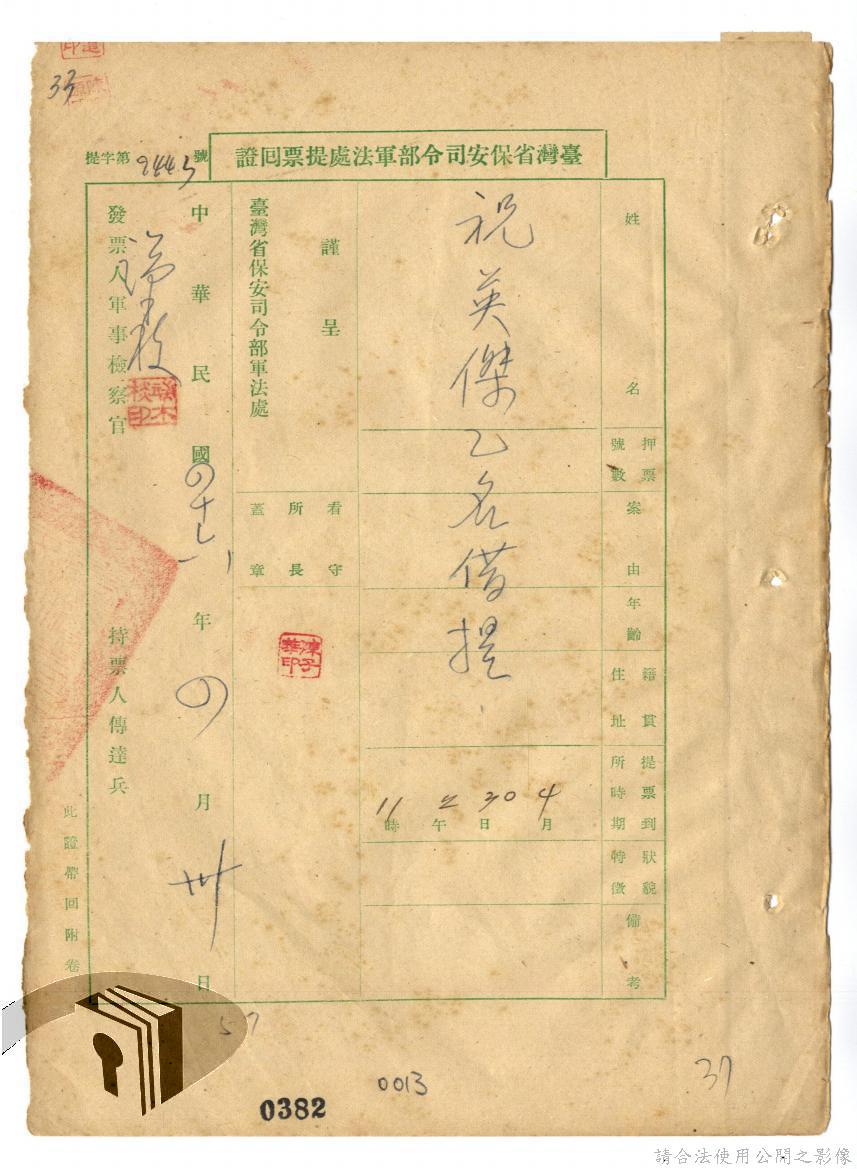 33
臺灣省保安司令部軍法處提票回證
提字第2443號
姓名
祝英傑乙名借提
押票號數
案由
年齡
籍貫住址
提票到所時期
4月30日上午11時
狀貌特徵
備考
謹呈
臺灣省保安司令部軍法處
看守所長蓋章
中華民國四十七年四月卅日
發票人軍事檢察官
持票人傳達兵
此證帶回附卷
57
0382
0013
37
請合法使用公開之影像